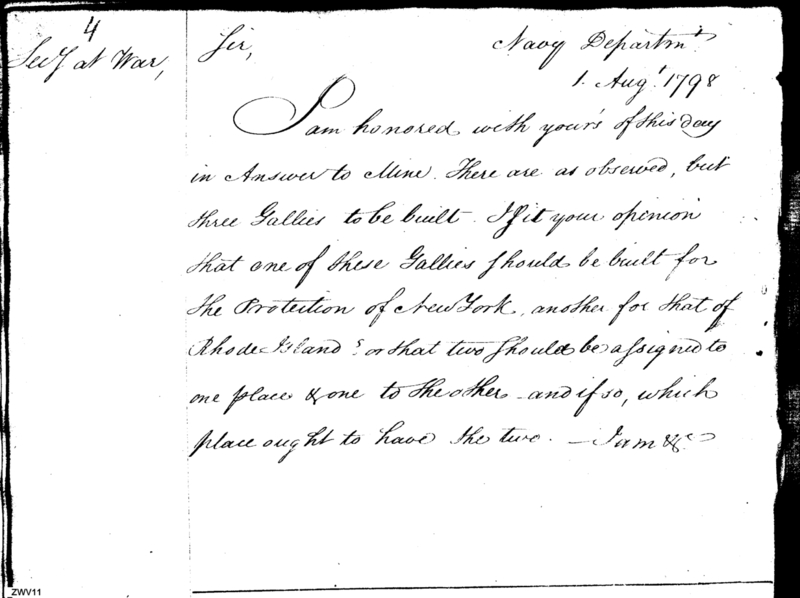 4
Secy at War,
Sir,
Navy Departmt
1. Augt 1798
I am honored with your's of this day
in Answer to Mine. There are as observed, but
three Gallies to be built. Is it your opinion
that one of these Gallies should be built for
the Protection of New York, another for that of
Rhode Island? or that two should be assigned to
one place & one to the other - and if so, which
place ought to have the two. — I am &c
ZWV11